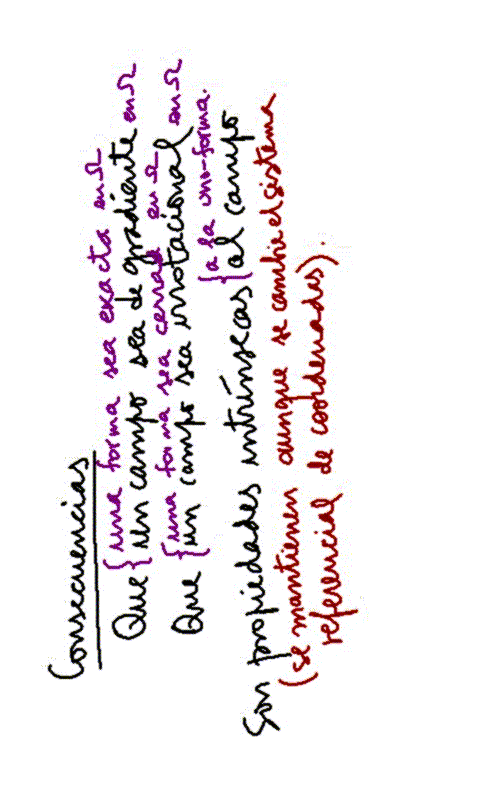 Consecuencias
una forma sea exacta en Ω
Que { un campo sea de gradiente en Ω
una forma sea cerrada en Ω
Que { un campo sea irrotacional en Ω
{ a la uno-forma.
Son propiedades intrínsecas { al campo
(se mantienen aunque se cambie el sistema
referencial de coordenadas).